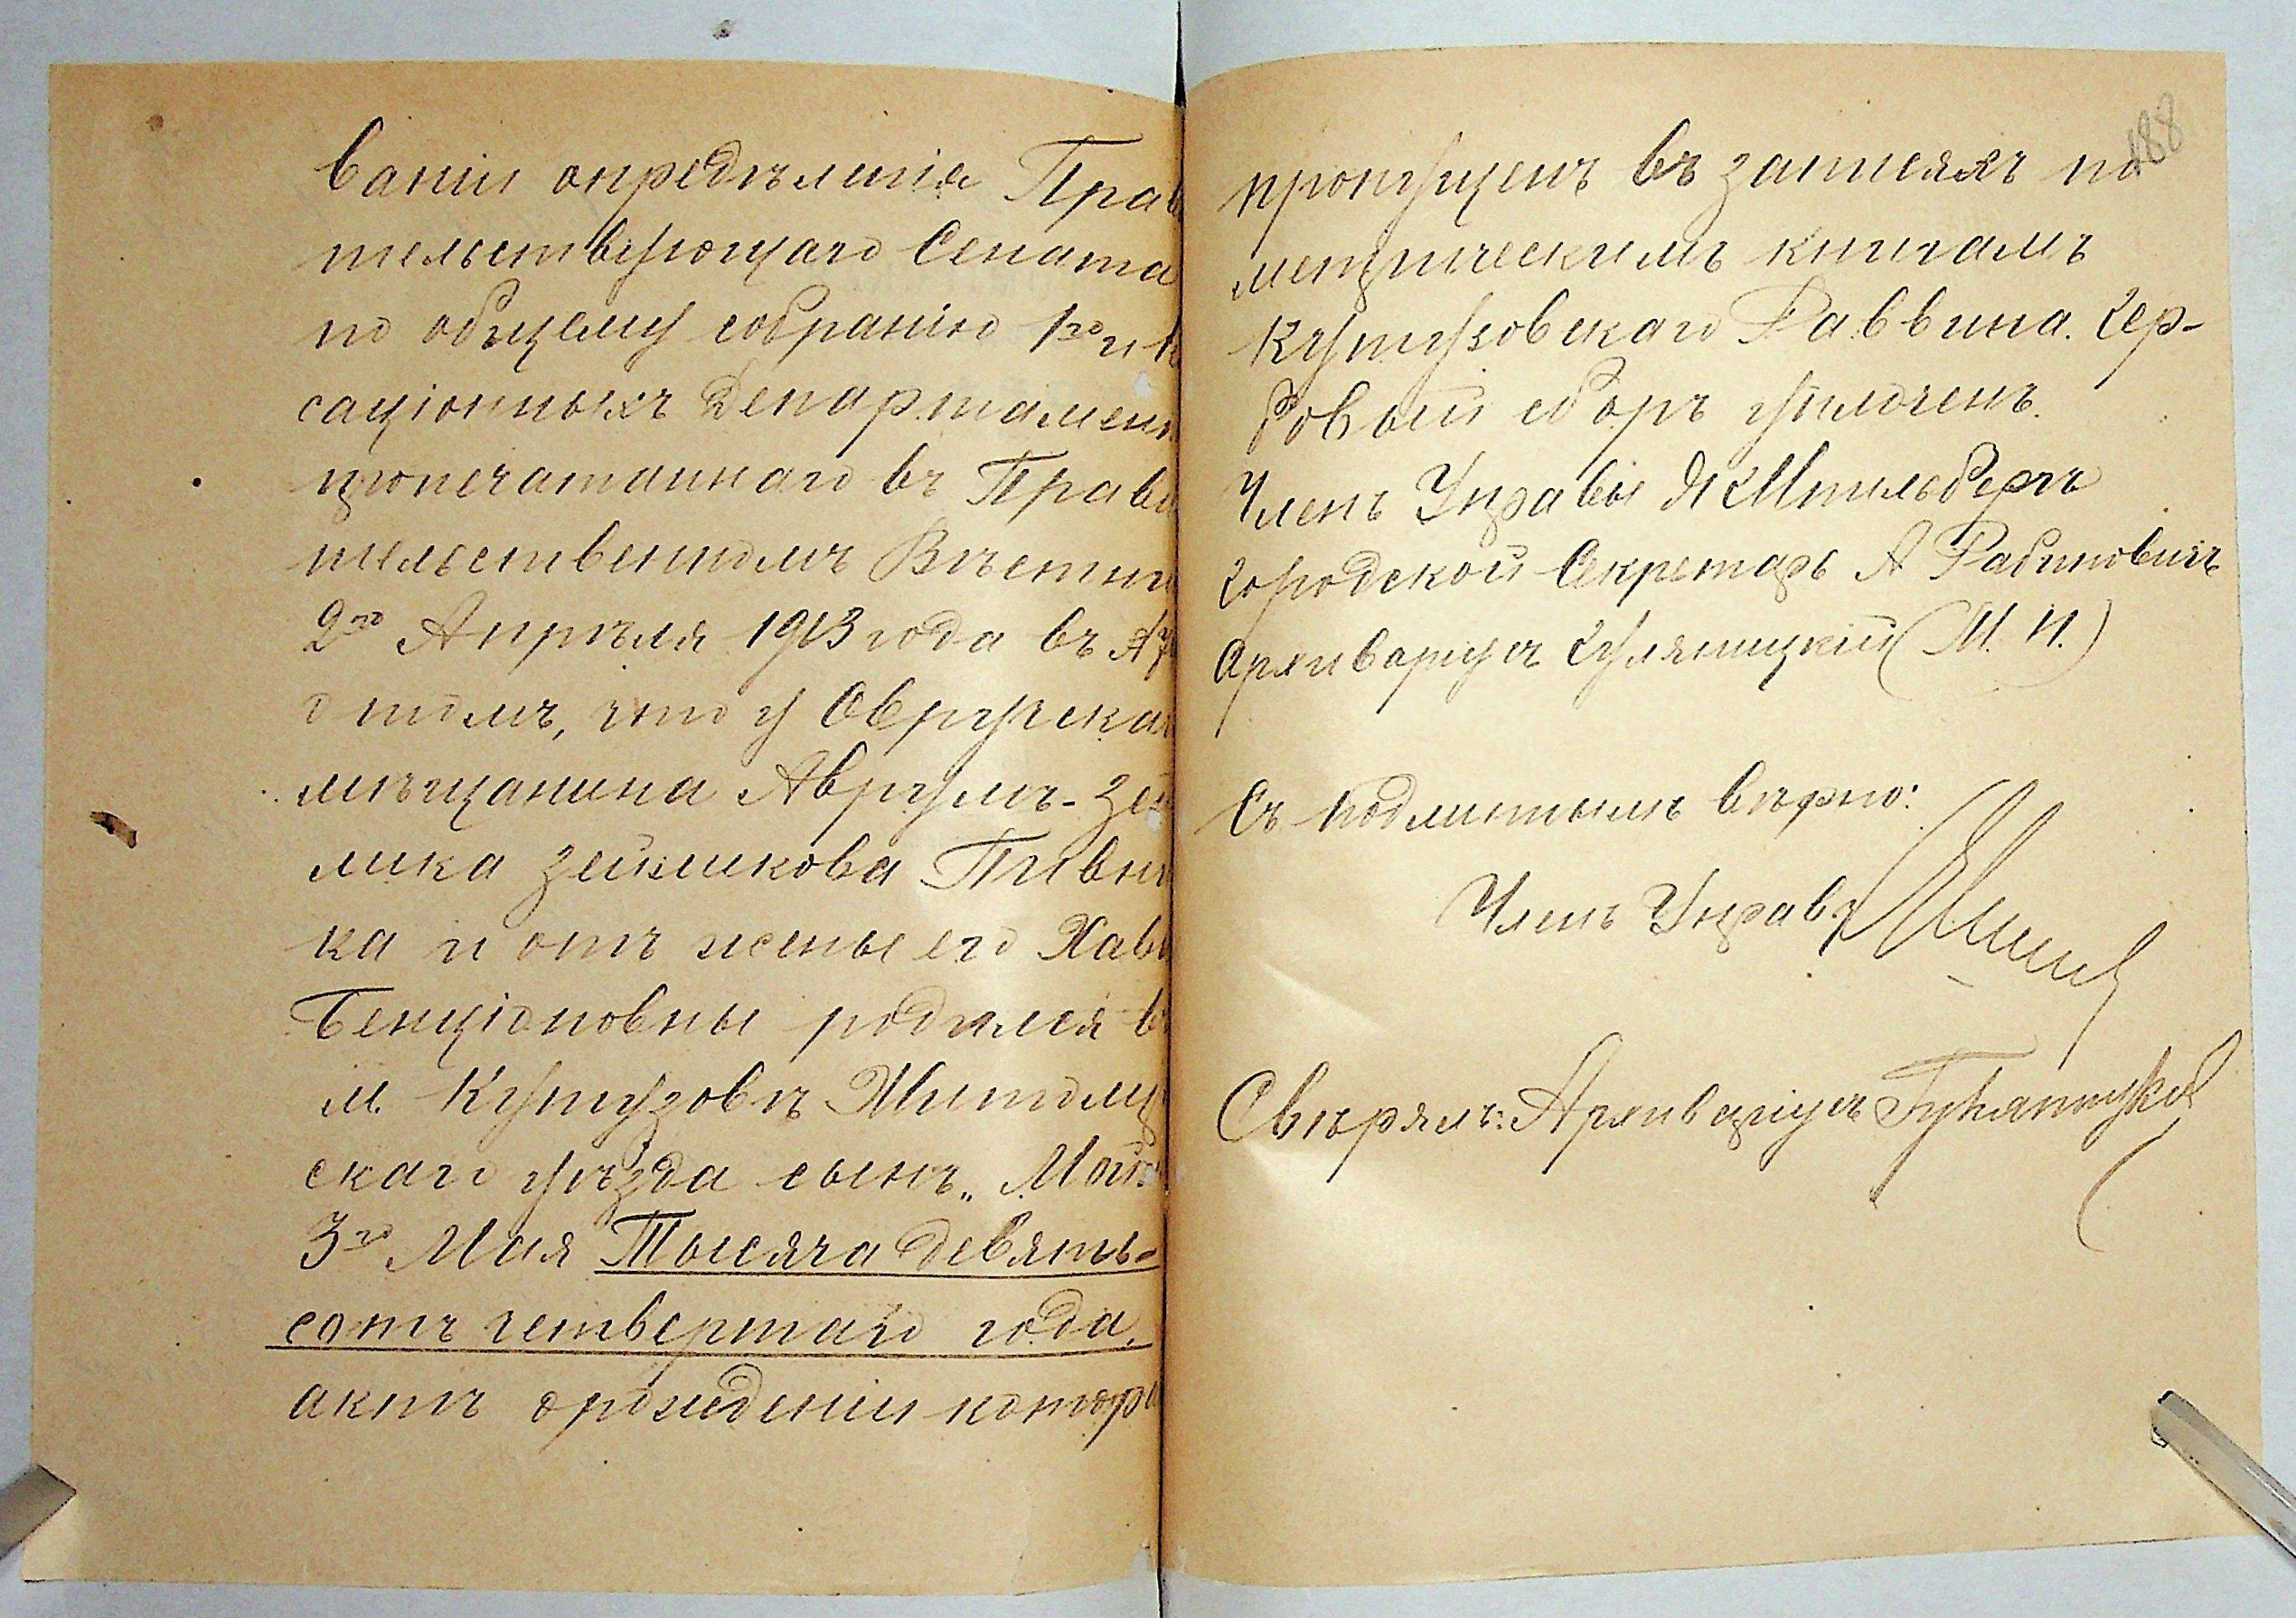 ваніи опредѣленія Прав
тельствующаго Сената
по общему собранію 1го и К
саціонныхъ Департамен
пропечатаннаго въ Прави
тельственномъ Вѣстни
2го Апрѣля 1913 года въ №
о томъ, что у Овручска
мѣщанина Аврумъ-Зей
лика Зейликова Пивни
ка и отъ жены его Хавы
Бенціоновны родился въ
м. Кутузовѣ Житомир
скаго уѣзда сынъ „Мой
3го Мая Тысяча девять-
сотъ четвертаго года,
актъ о рожденіи котор
188
пропущенъ въ записяхъ по
метрическимъ книгамъ
Кутузовскаго Раввина. Гер-
бовый сборъ уплоченъ.
Членъ Управы Мительбергъ
Городской Секретарь А Рабиновичъ
Архиваріусъ Гуляницкій (М. П.)
Съ подлиннымъ вѣрно:
Членъ Управы
Свѣрялъ: Архиваріусъ Гуляницкій